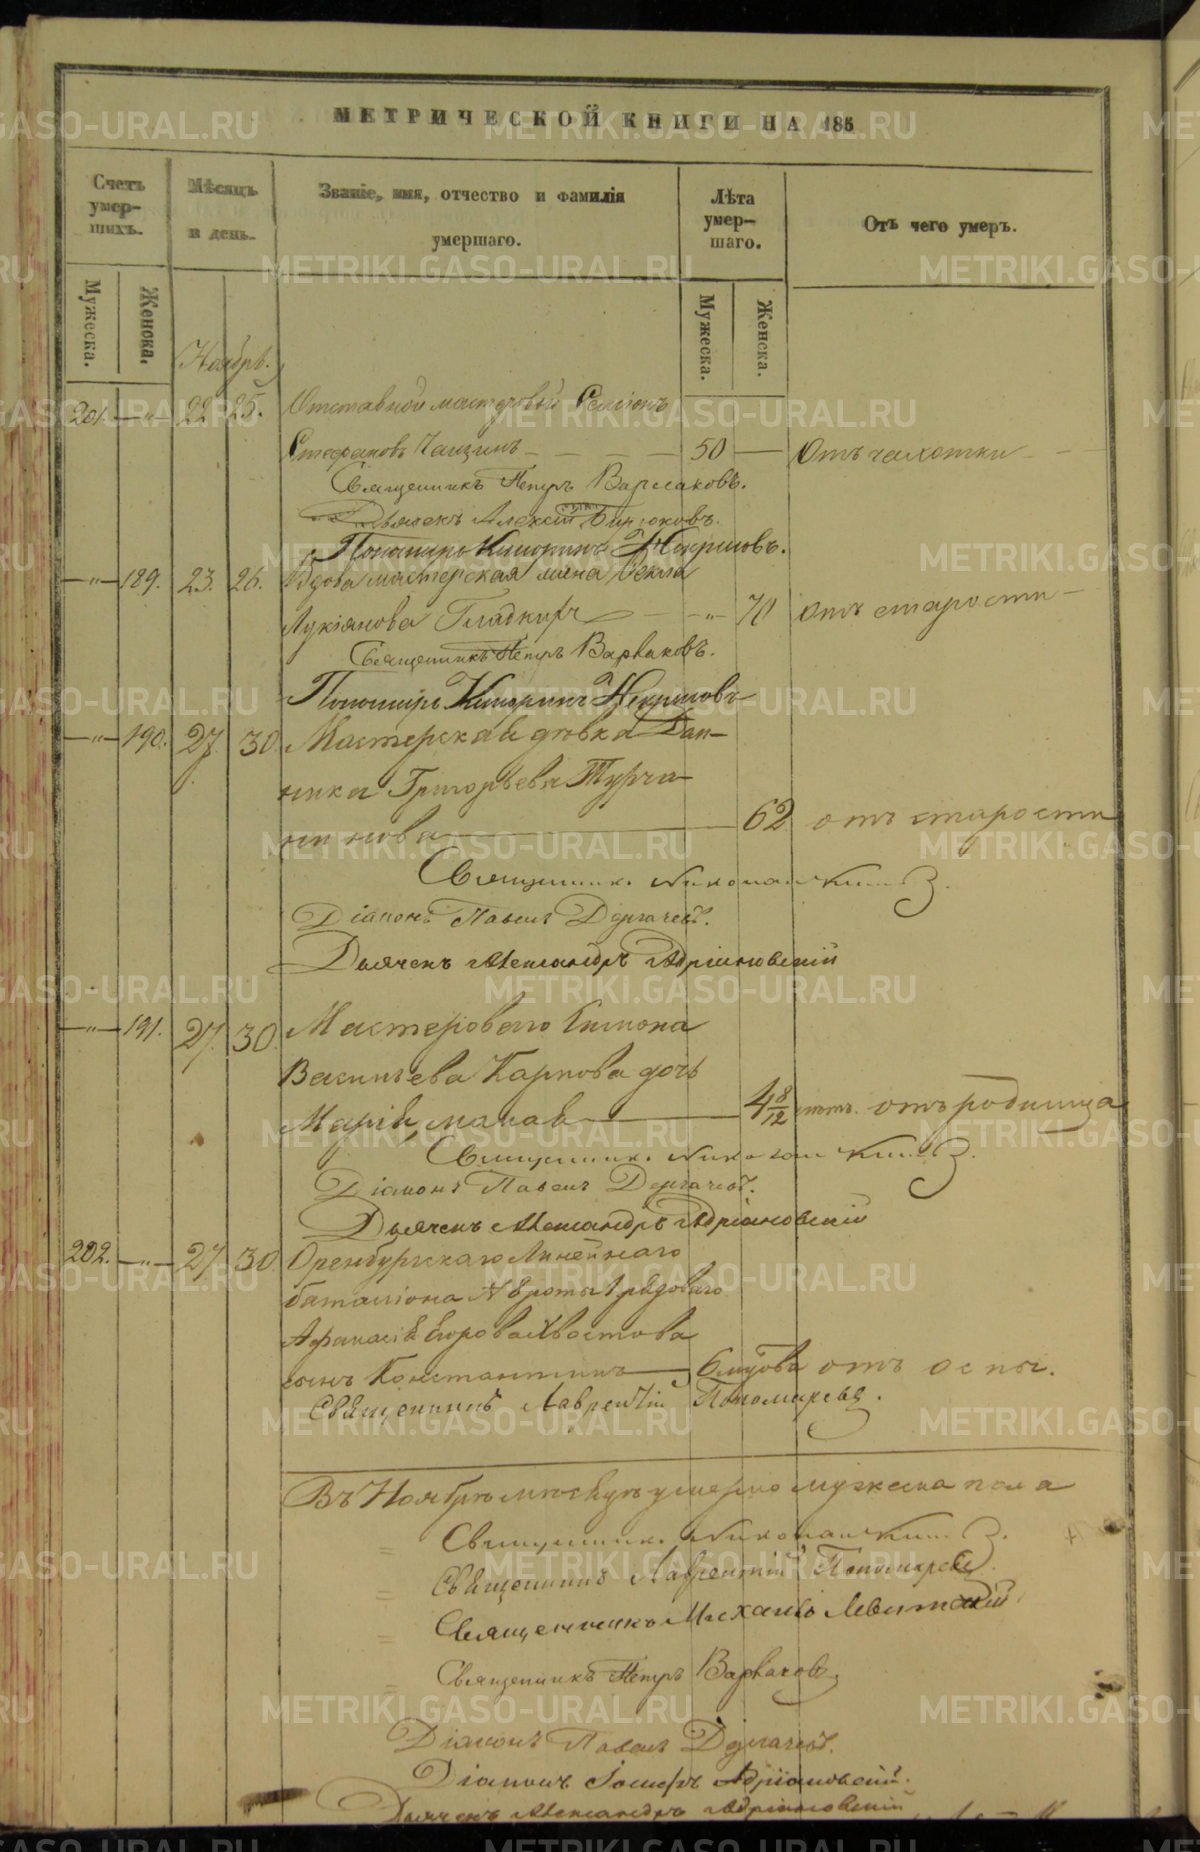 МЕТРИЧЕСКОЙ КНИГИ НА 185
Счетъ умер-шихъ.
Мѣсяцъ и день.
Званіе, имя, отчество и фамилія умершаго.
Лѣта умер-шаго.
Отъ чего умеръ.
Мужеска.
Женска.
Мужеска.
Женска.
Ноябрь.
201. — „ — 22 25. Отставной мастеровой
Стефановъ — 50 — Отъ чахотки
Священникъ Петръ Варлаковъ.
Дьячекъ Алексій Бирюковъ.
Пономарь Некрасовъ.
— „ — 189. 23. 26. Вдова мастерская жена Фекла
Лукіянова Гладкихъ — „ — 70 отъ старости
Священникъ Петръ Варлаковъ.
Пономарь Некрасовъ
— „ — 190. 27 30 Мастерская дѣвка Дом-
ника Григорьева Турча-
нинова — 62 отъ старости
Священникъ
Діаконъ Павелъ Дергачевъ.
Дьячекъ Александръ Адріановскій
— „ — 191. 27. 30. Мастероваго
Васильева Карпова дочь
Марія — 4 8/12 отъ родимца
Священникъ
Діаконъ Павелъ Дергачевъ.
Дьячекъ Александръ Адріановскій
202. — „ — 27 30 Оренбургскаго Линейнаго
баталіона № 8 роты 1 рядоваго
Хвостова
сынъ Константинъ — отъ оспы.
Священникъ Лаврентій Пономаревъ.
Въ Ноябрѣ мѣсяцѣ умерло мужеска пола
Священникъ
Священникъ Лаврентій Пономаревъ
Священникъ Михаилъ Левитскій
Священникъ Петръ Варлаковъ
Діаконъ Павелъ Дергачевъ.
Діаконъ Іосифъ Адріановскій.
Дьячекъ Александръ Адріановскій
METRIKI.GASO-URAL.RU